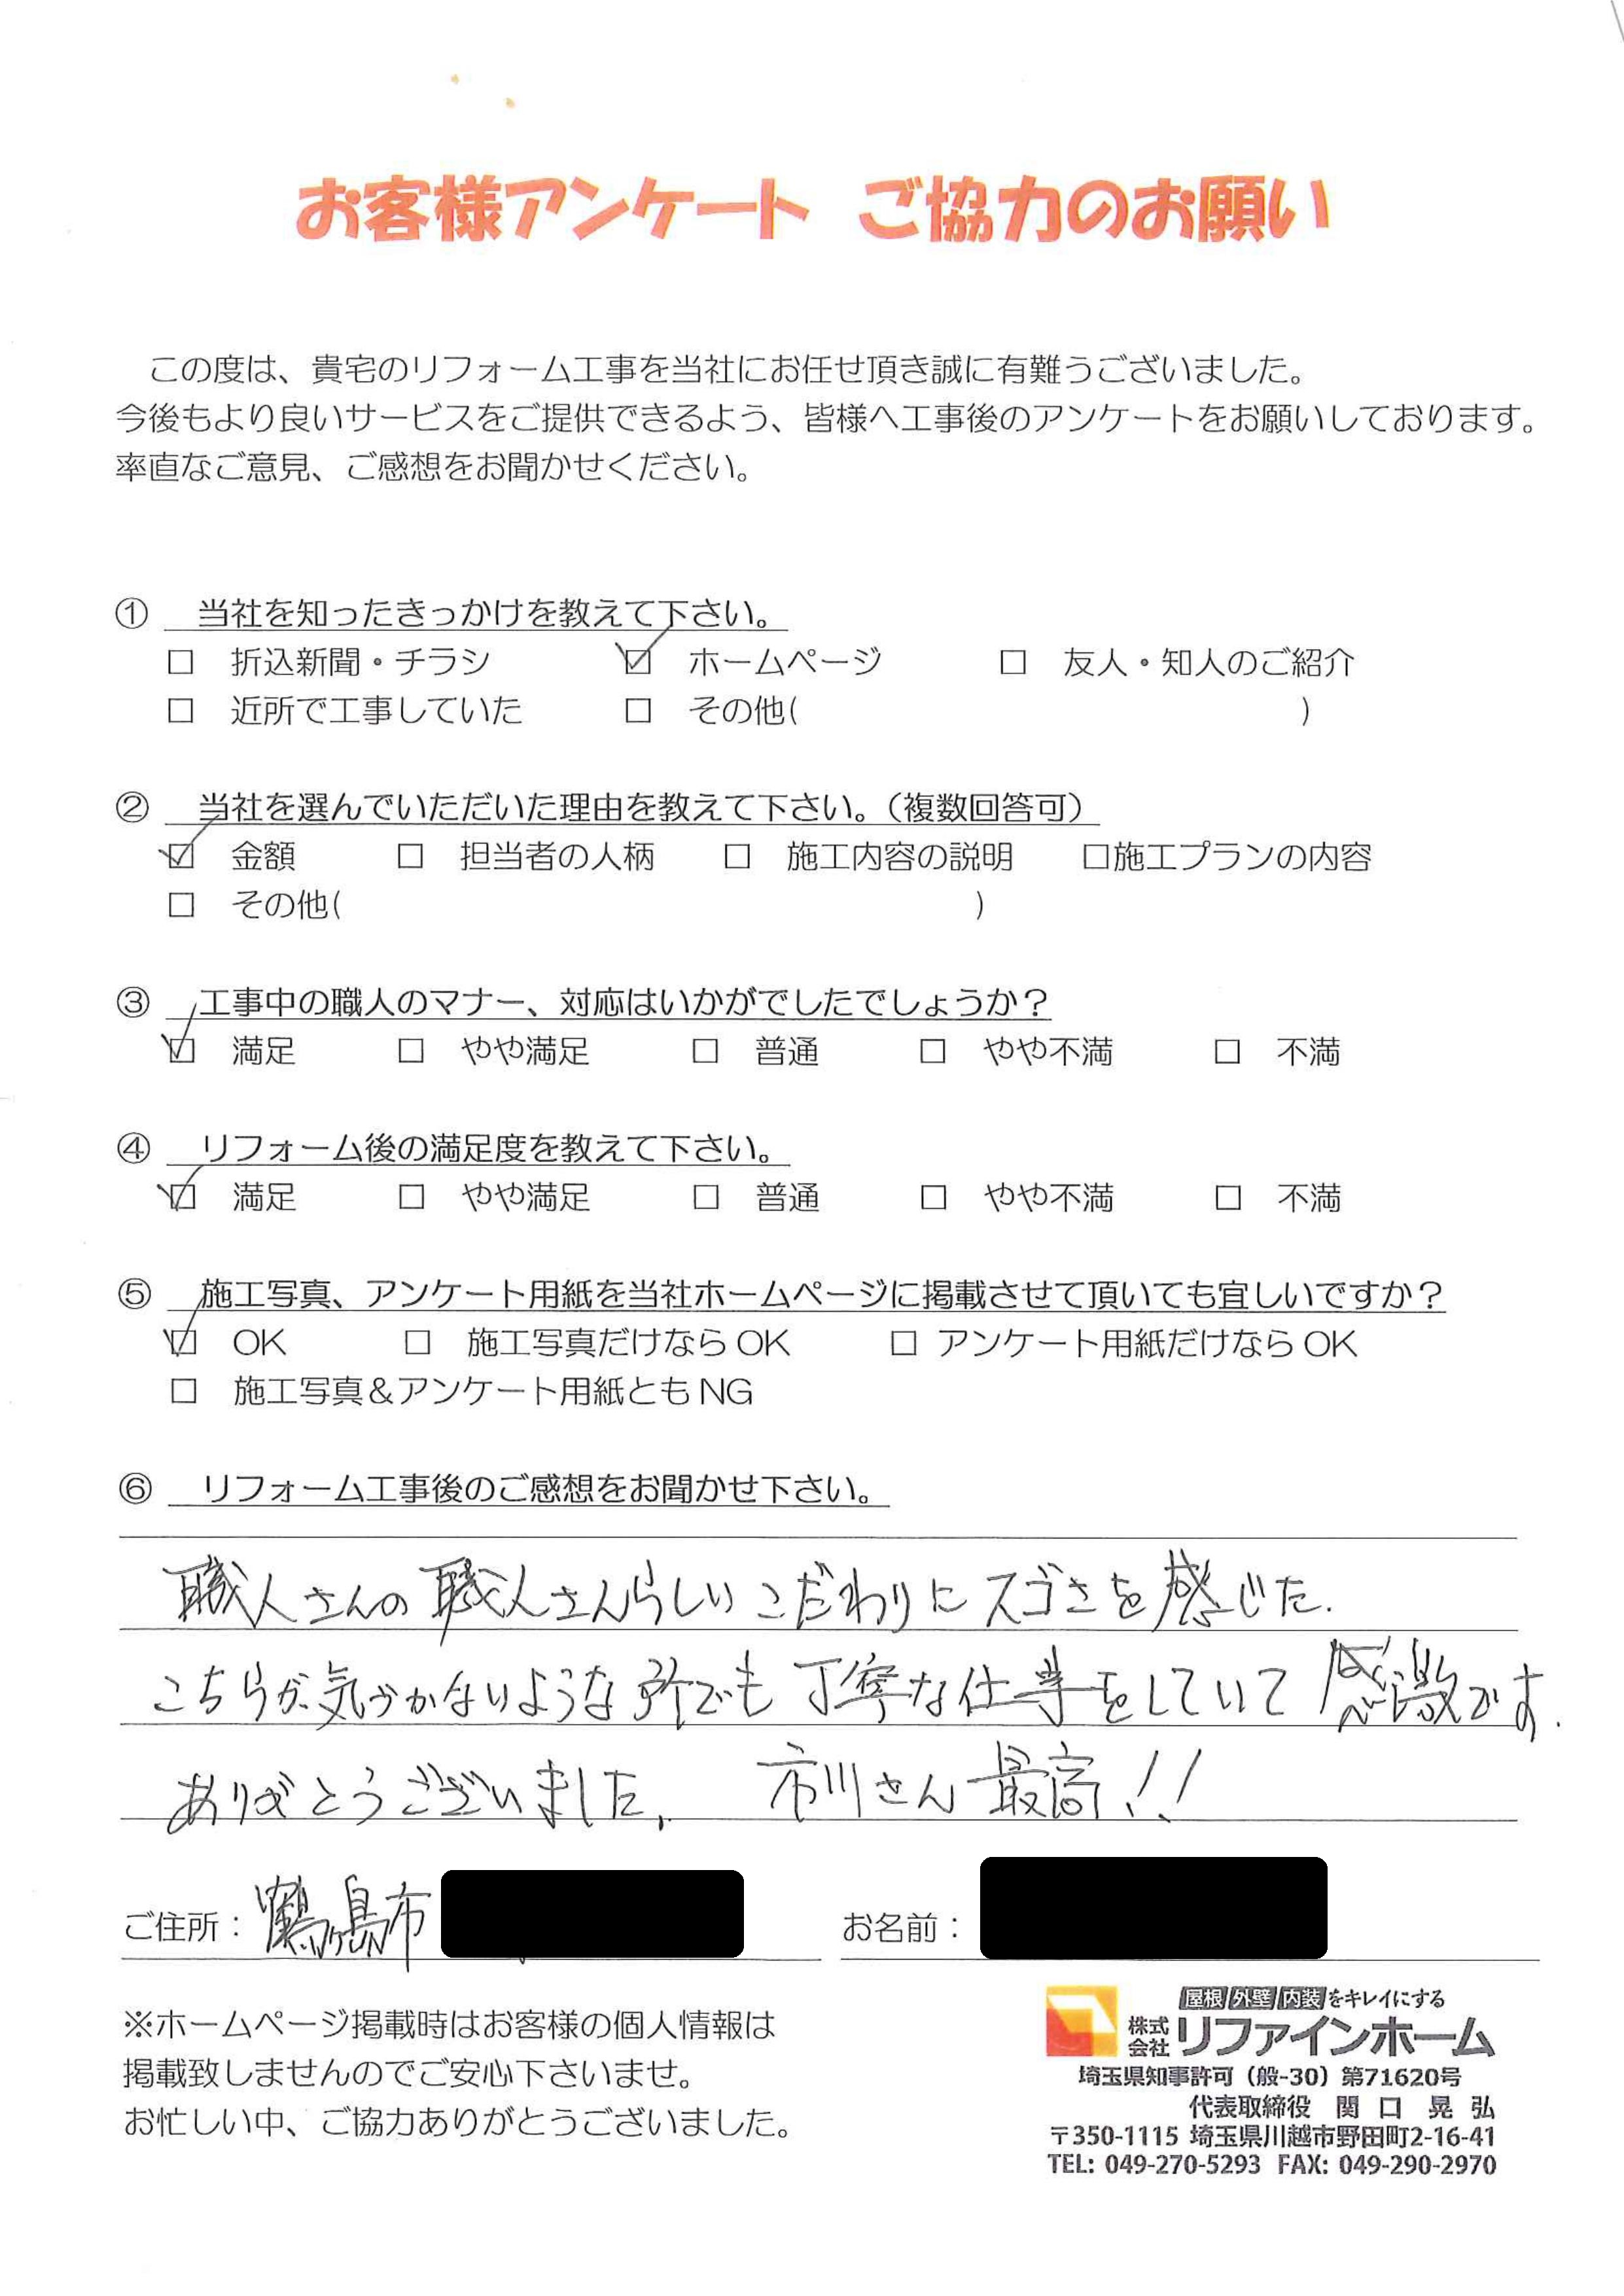 お客様アンケート ご協力のお願い
この度は、貴宅のリフォーム工事を当社にお任せ頂き誠に有難うございました。
今後もより良いサービスをご提供できるよう、皆様へ工事後のアンケートをお願いしております。
率直なご意見、ご感想をお聞かせください。
① 当社を知ったきっかけを教えて下さい。
□ 折込新聞・チラシ ☑ ホームページ □ 友人・知人のご紹介
□ 近所で工事していた □ その他( )
② 当社を選んでいただいた理由を教えて下さい。（複数回答可）
☑ 金額 □ 担当者の人柄 □ 施工内容の説明 □施工プランの内容
□ その他( )
③ 工事中の職人のマナー、対応はいかがでしたでしょうか？
☑ 満足 □ やや満足 □ 普通 □ やや不満 □ 不満
④ リフォーム後の満足度を教えて下さい。
☑ 満足 □ やや満足 □ 普通 □ やや不満 □ 不満
⑤ 施工写真、アンケート用紙を当社ホームページに掲載させて頂いても宜しいですか？
☑ OK □ 施工写真だけなら OK □ アンケート用紙だけなら OK
□ 施工写真＆アンケート用紙とも NG
⑥ リフォーム工事後のご感想をお聞かせ下さい。
職人さんの職人さんらしいこだわりにスゴさを感じた.
こちらが気づかないような所でも丁寧な仕事をしていて感激です.
ありがとうございました. 市川さん最高!!
ご住所： 鶴ヶ島市 お名前：
※ホームページ掲載時はお客様の個人情報は
掲載致しませんのでご安心下さいませ。
お忙しい中、ご協力ありがとうございました。
屋根 外壁 内装 をキレイにする
株式会社 リファインホーム
埼玉県知事許可（般-30）第71620号
代表取締役 関口晃弘
〒350-1115 埼玉県川越市野田町2-16-41
TEL: 049-270-5293 FAX: 049-290-2970